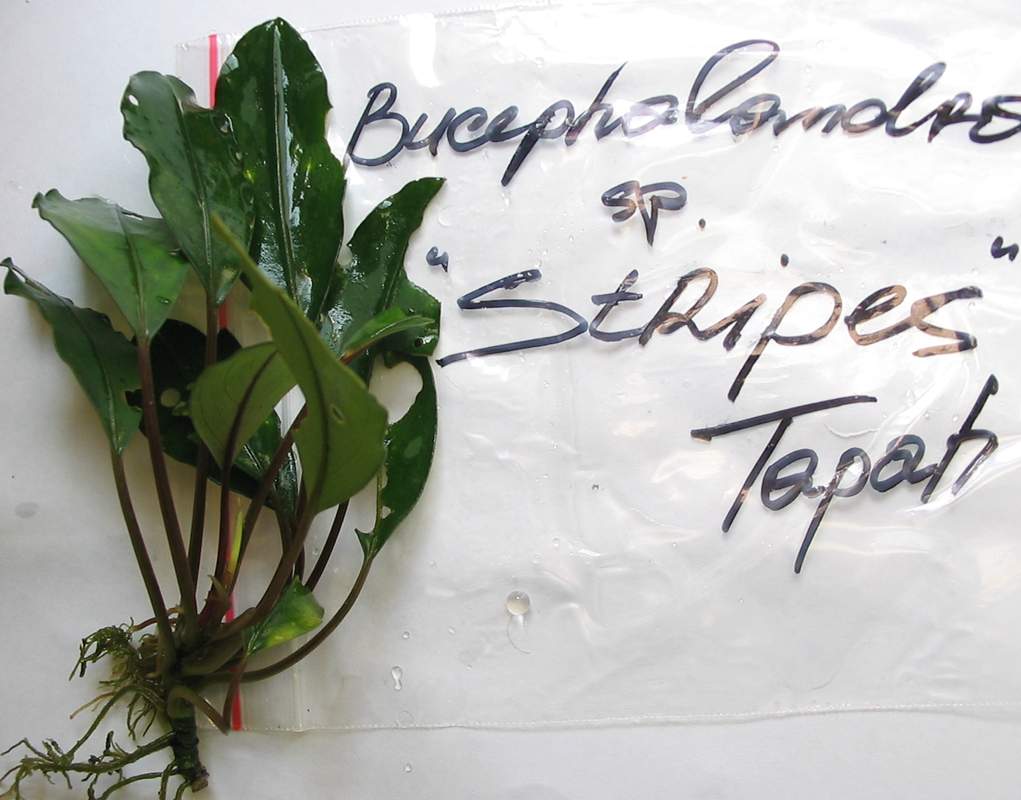 Bucephalandra
sp.
"Stripes"
Tapah